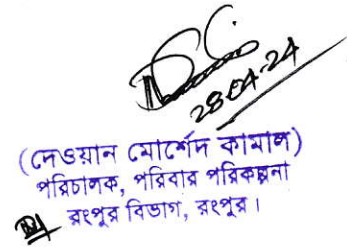 28.04.24
(দেওয়ান মোর্শেদ কামাল)
পরিচালক, পরিবার পরিকল্পনা
রংপুর বিভাগ, রংপুর।